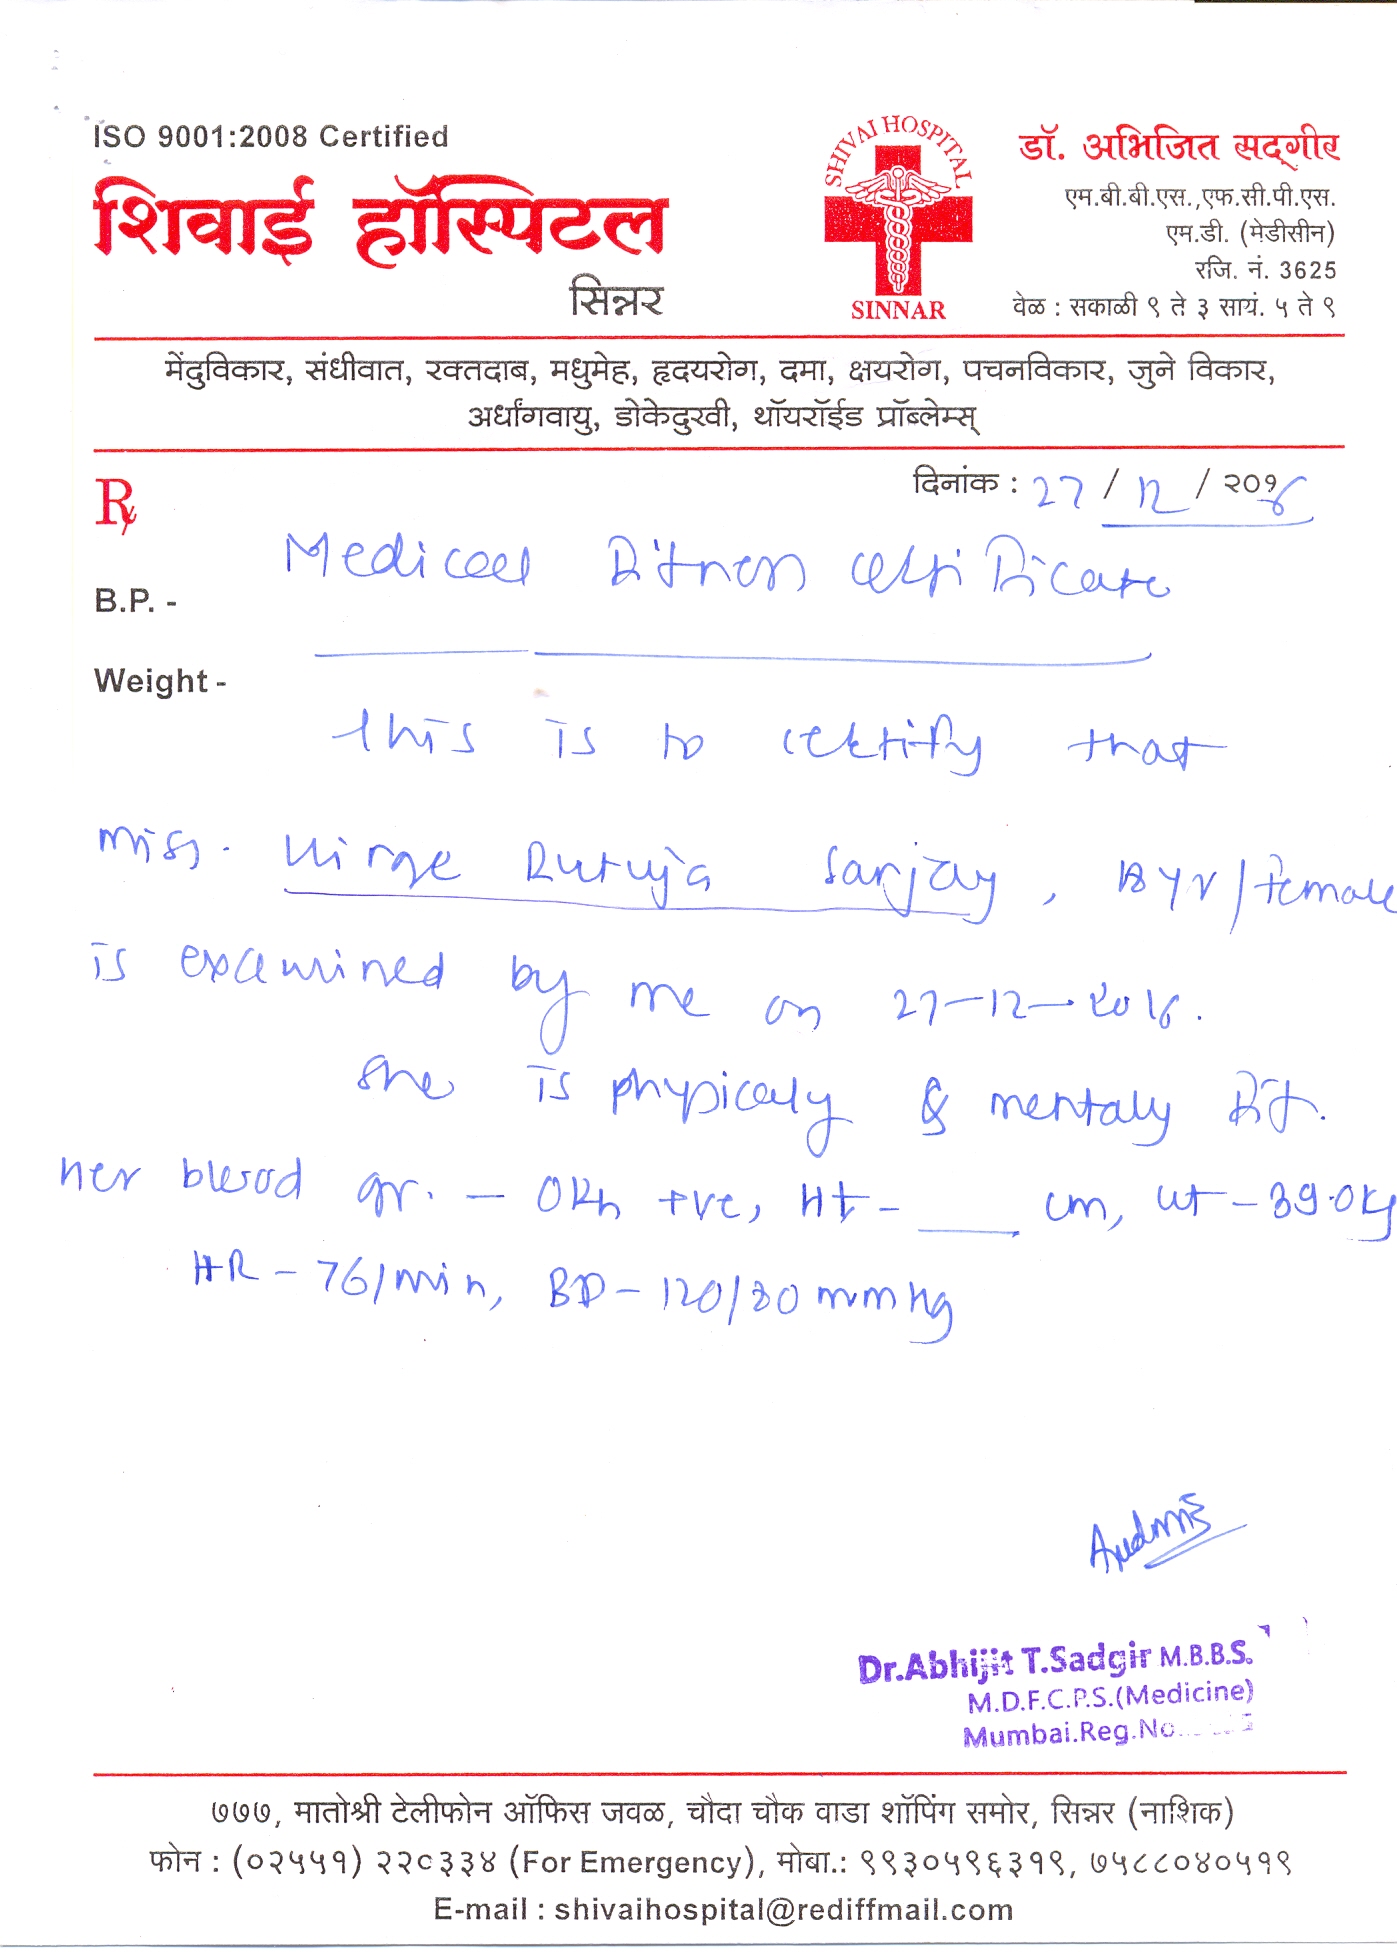 ISO 9001:2008 Certified
शिवाई हॉस्पिटल
सिन्नर
SHIVAI HOSPITAL
SINNAR
डॉ. अभिजित सद्गीर
एम.बी.बी.एस.,एफ.सी.पी.एस.
एम.डी. (मेडीसीन)
रजि. नं. 3625
वेळ : सकाळी ९ ते ३ सायं. ५ ते ९
मेंदुविकार, संधीवात, रक्तदाब, मधुमेह, हृदयरोग, दमा, क्षयरोग, पचनविकार, जुने विकार,
अर्धांगवायु, डोकेदुखी, थॉयरॉईड प्रॉब्लेम्स्
Rx
दिनांक : 27 / 12 / २०१6
Medical Fitness certificate
B.P. -
Weight -
This is to certify that
miss. Rutuja Sanjay, yr/female
is examined by me on 27-12-2016.
She is physicaly & mentaly Fit.
her blood gr. - ORh +ve, Ht- ___ cm, wt - 39.0kg
HR - 76/min, BP - 120/80 mmHg
Dr.Abhijit T.Sadgir M.B.B.S.
M.D.F.C.P.S.(Medicine)
Mumbai.Reg.No.
७७७, मातोश्री टेलीफोन ऑफिस जवळ, चौदा चौक वाडा शॉपिंग समोर, सिन्नर (नाशिक)
फोन : (०२५५१) २२०३३४ (For Emergency), मोबा.: ९९३०५९६३१९, ७५८८०४०५१९
E-mail : shivaihospital@rediffmail.com